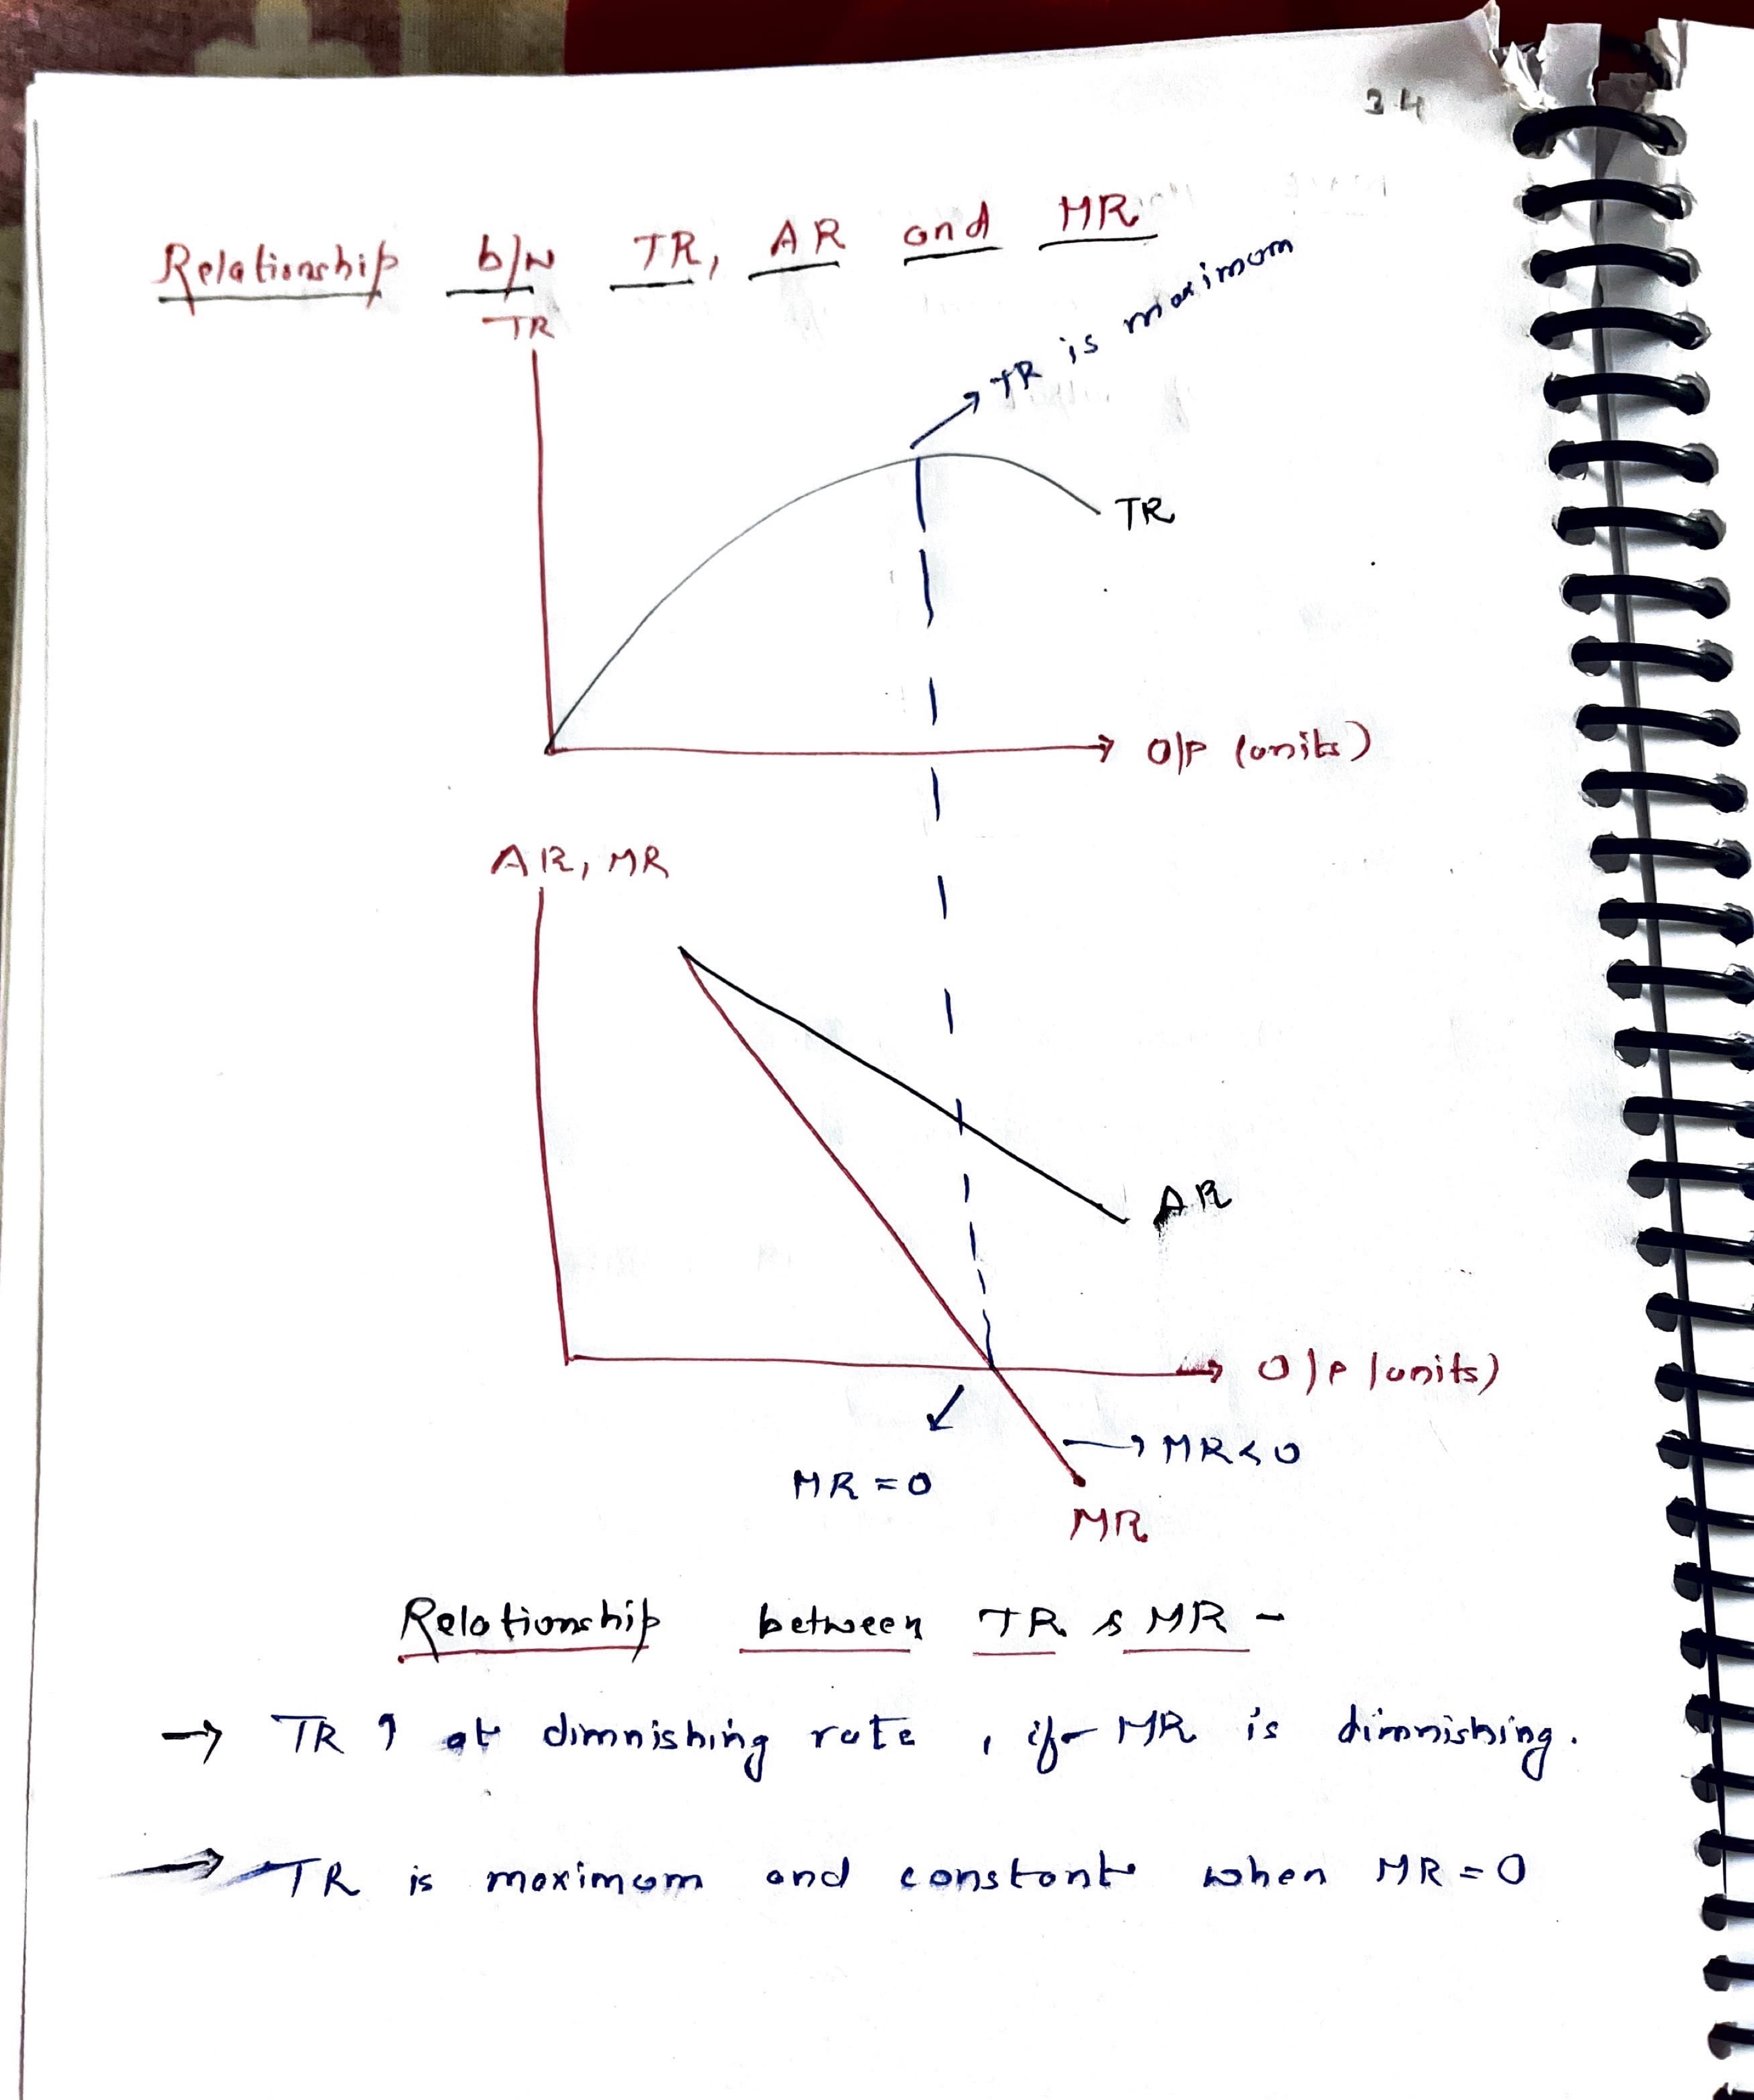 34
Relationship b/N TR, AR and MR
TR
TR is maximum
TR
O/P (units)
AR, MR
AR
O/P (units)
MR = 0
MR < 0
MR
Relationship between TR & MR -
→ TR ↑ at dimnishing rate , if MR is dimnishing.
→ TR is maximum and constant when MR = 0